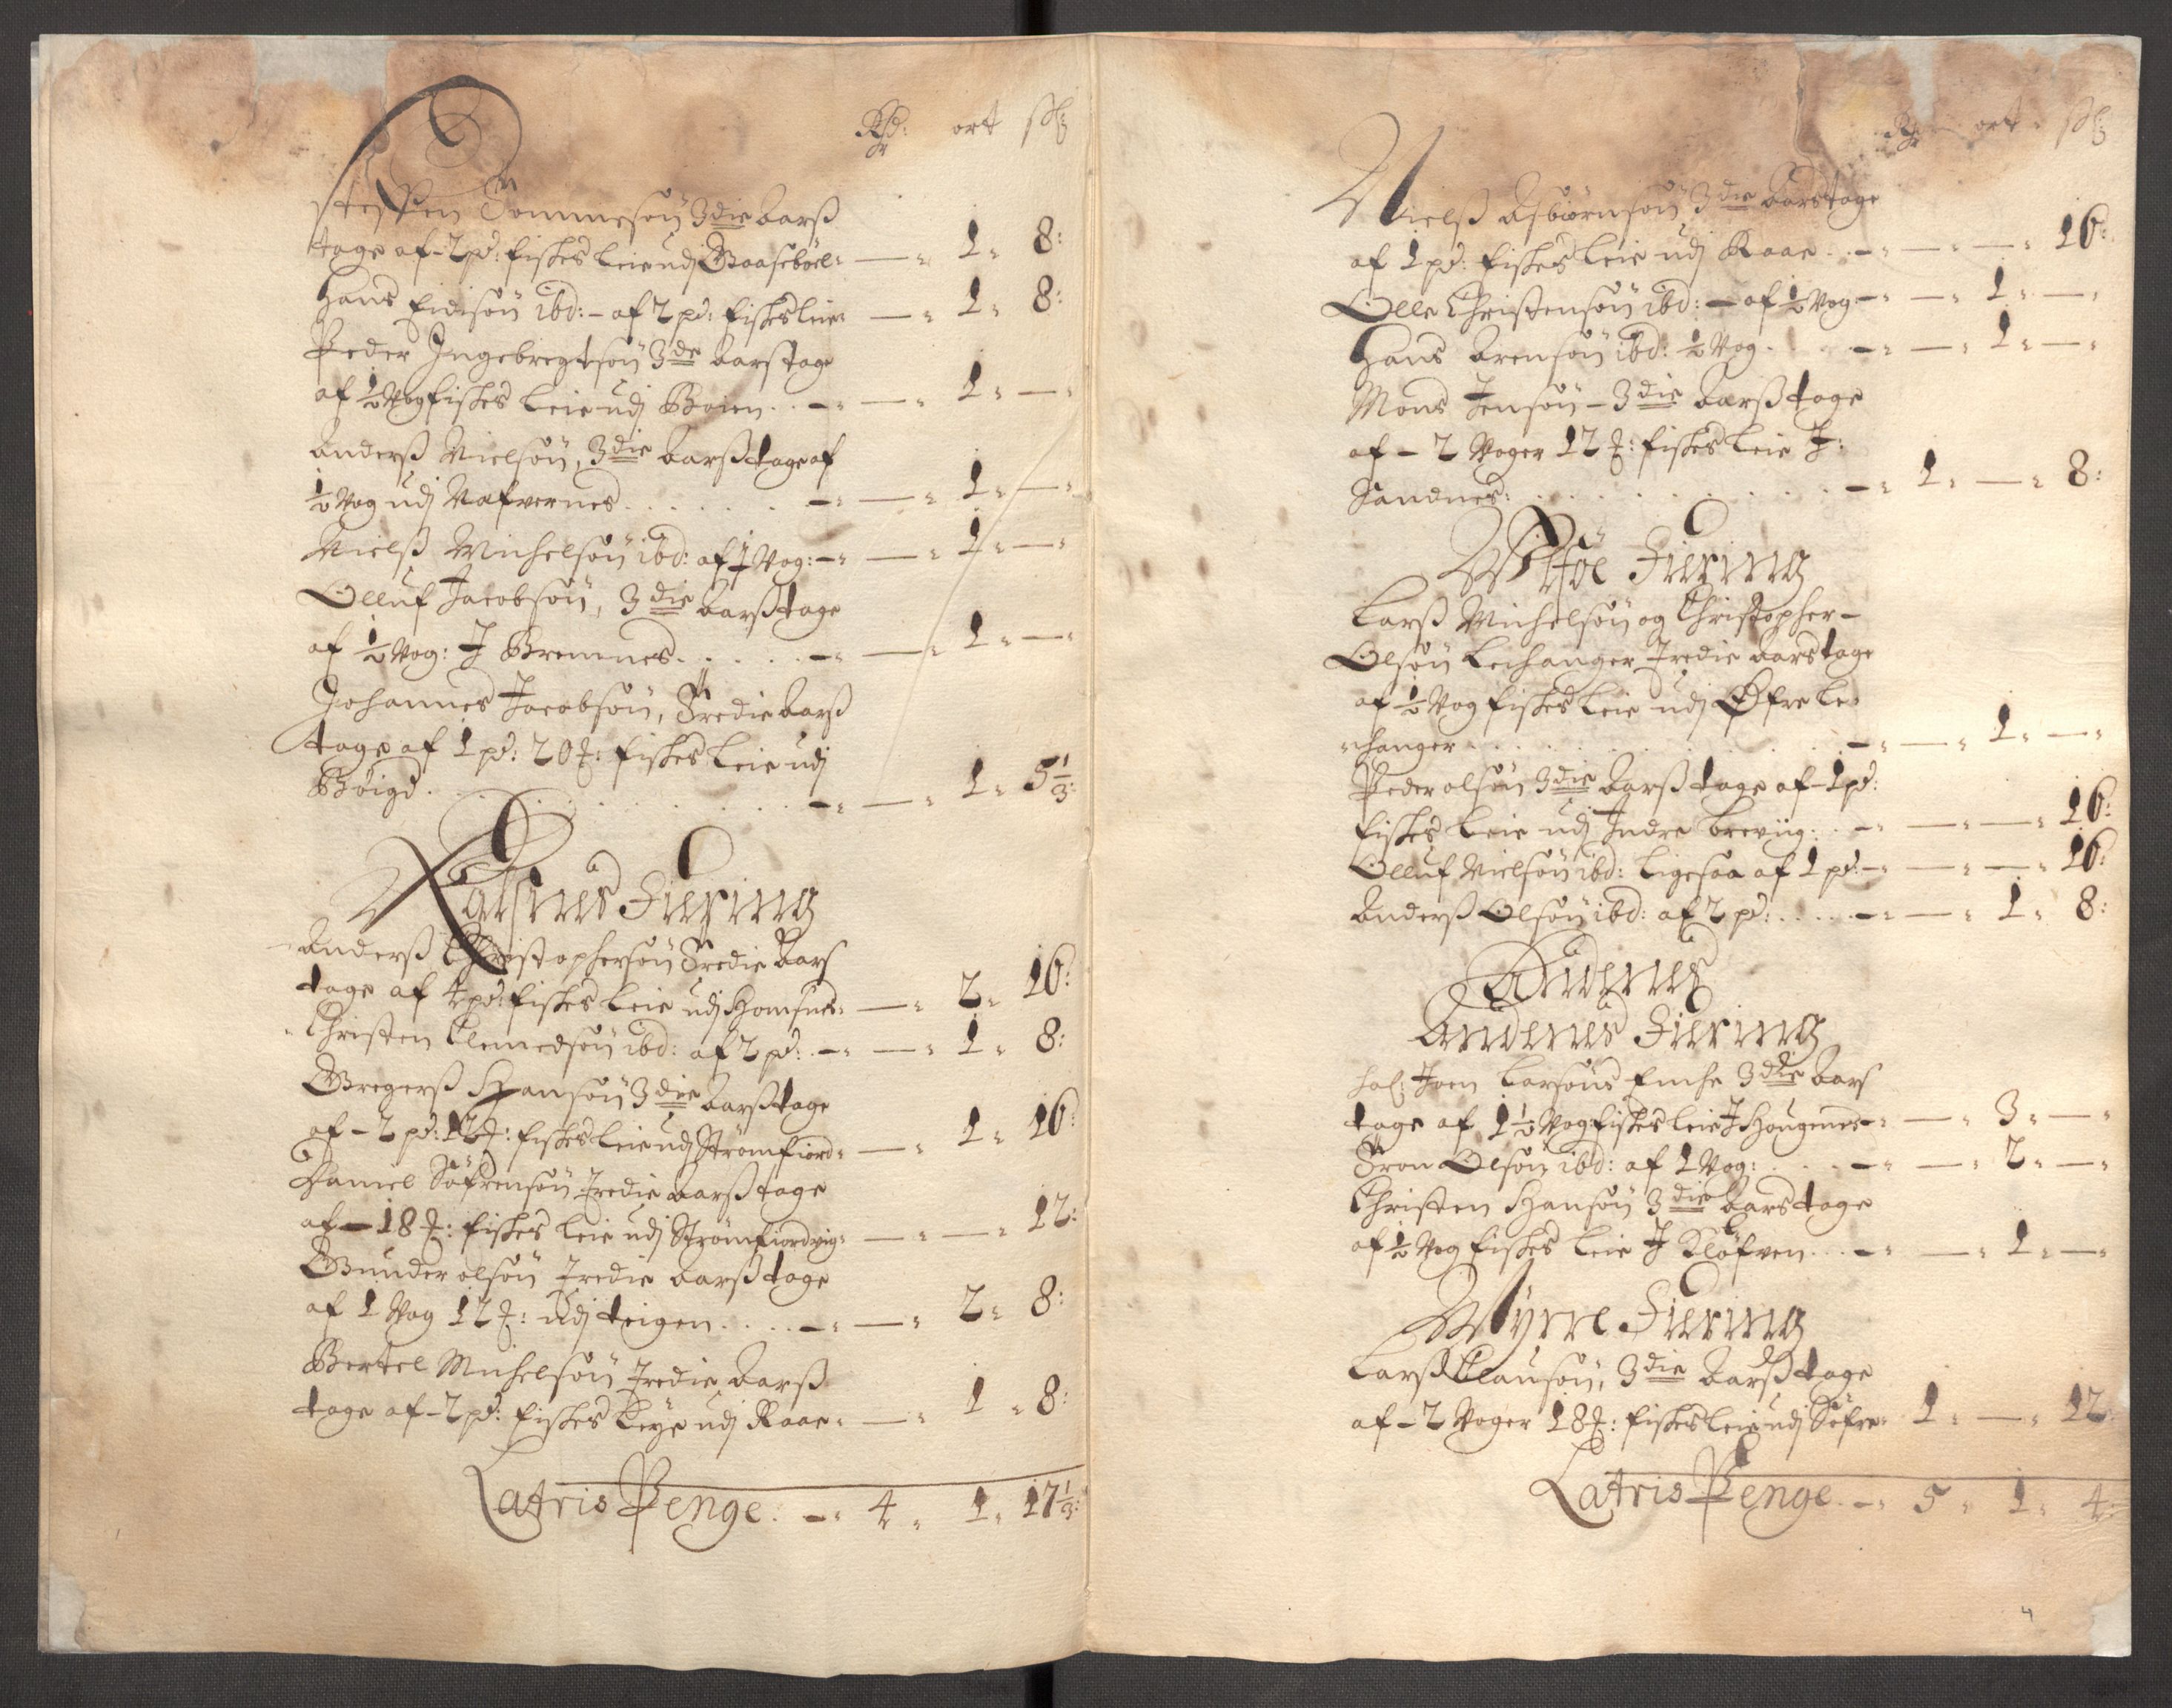 Rdr: ort sk:
Steffen Tommesøn 3die aarß
tage af - 2 pd: fiskes leie udj Gaasebøel: — 1 8:
Hans Eidisøn ibd: - af 2 pd: fiskes leie — 1 8:
Peder Ingebregtsøn 3de aarstage
af ½ Vog fiskes leie udj Boien — 1 —
Anderß Nielsøn, 3die aarßtage af
½ Vog udj Nafvernes — 1 —
Nielß Michelsøn ibd: af ½ Vog: — 1 —
Olluf Jacobsøn, 3die aarßtage
af ½ Vog: J Bremnes — 1 —
Johannes Jacobsøn, Tredie aarß
tage af 1 pd: 20 #: fiskes leie udj
Bøigd — 1 5⅓:
Fiering
Anderß Christophersøn Tredie Aars
tage af 4 pd: fiskes leie udj Homsnes: — 2 16:
Christen Clemedsøn ibd: af 2 pd: — 1 8:
Gregerß Hansøn 3die aarßtage
af - 2 pd: 12 #: fiskes leie udj Strømfiord: — 1 16:
Daniel Søfrensøn Tredie aarßtage
af - 18 #: fiskes leie udj Strømfiordvig: — — 12:
Gunder olsøn Tredie aarßtage
af 1 Vog 12 #: udj teigen — 2 8:
Bertel Michelsøn Tredie aarß
tage af - 2 pd: fiskes leye udj Raae: — 1 8:
Latris Penge: 4 1 17⅓:
Rdr ort sk:
Nielß Asbiørnsøn 3die aarstage
af 1 pd: fiskes leie udj Raae — — 16:
Olle Christensøn ibd: - af ½ Vog — 1 —
Hans Arensøn ibd: ½ Vog — 1 —
Mons Jensøn - 3die aarßtage
af - 2 Voger 12 #: fiskes leie J:
Sandnes: 1 — 8:
Fiering
Larß Michelsøn og Christopher -
Olsøn Leehanger Tredie aarstage
af ½ Vog fiskes leie udj Øfre Le=
=hanger — 1 —
Peder olsøn 3die aarßtage af - 1 pd:
fiskes leie udj Indre breviig: — — 16:
Olluf Nielsøn ibd: ligesaa af 1 pd: — — 16:
Anderß Olsøn ibd: af 2 pd: — 1 8:
Andenes
Andenes Fiering
Sal: Joen Larsøns Enche 3die Aars
tage af 1½ Vog fiskes leie J Haugenes — 3 —
Tron Olsøn ibd: af 1 Vog: — 2 —
Christen Hansøn 3die aarstage
af ½ Vog fiskes leie J Kløfven — 1 —
Myrre Fiering
Larß Clausøn, 3die aarßtage
af - 2 Voger 18 #: fiskes leie udj Søfre: 1 — 12:
Latris Penge 5 1 4: